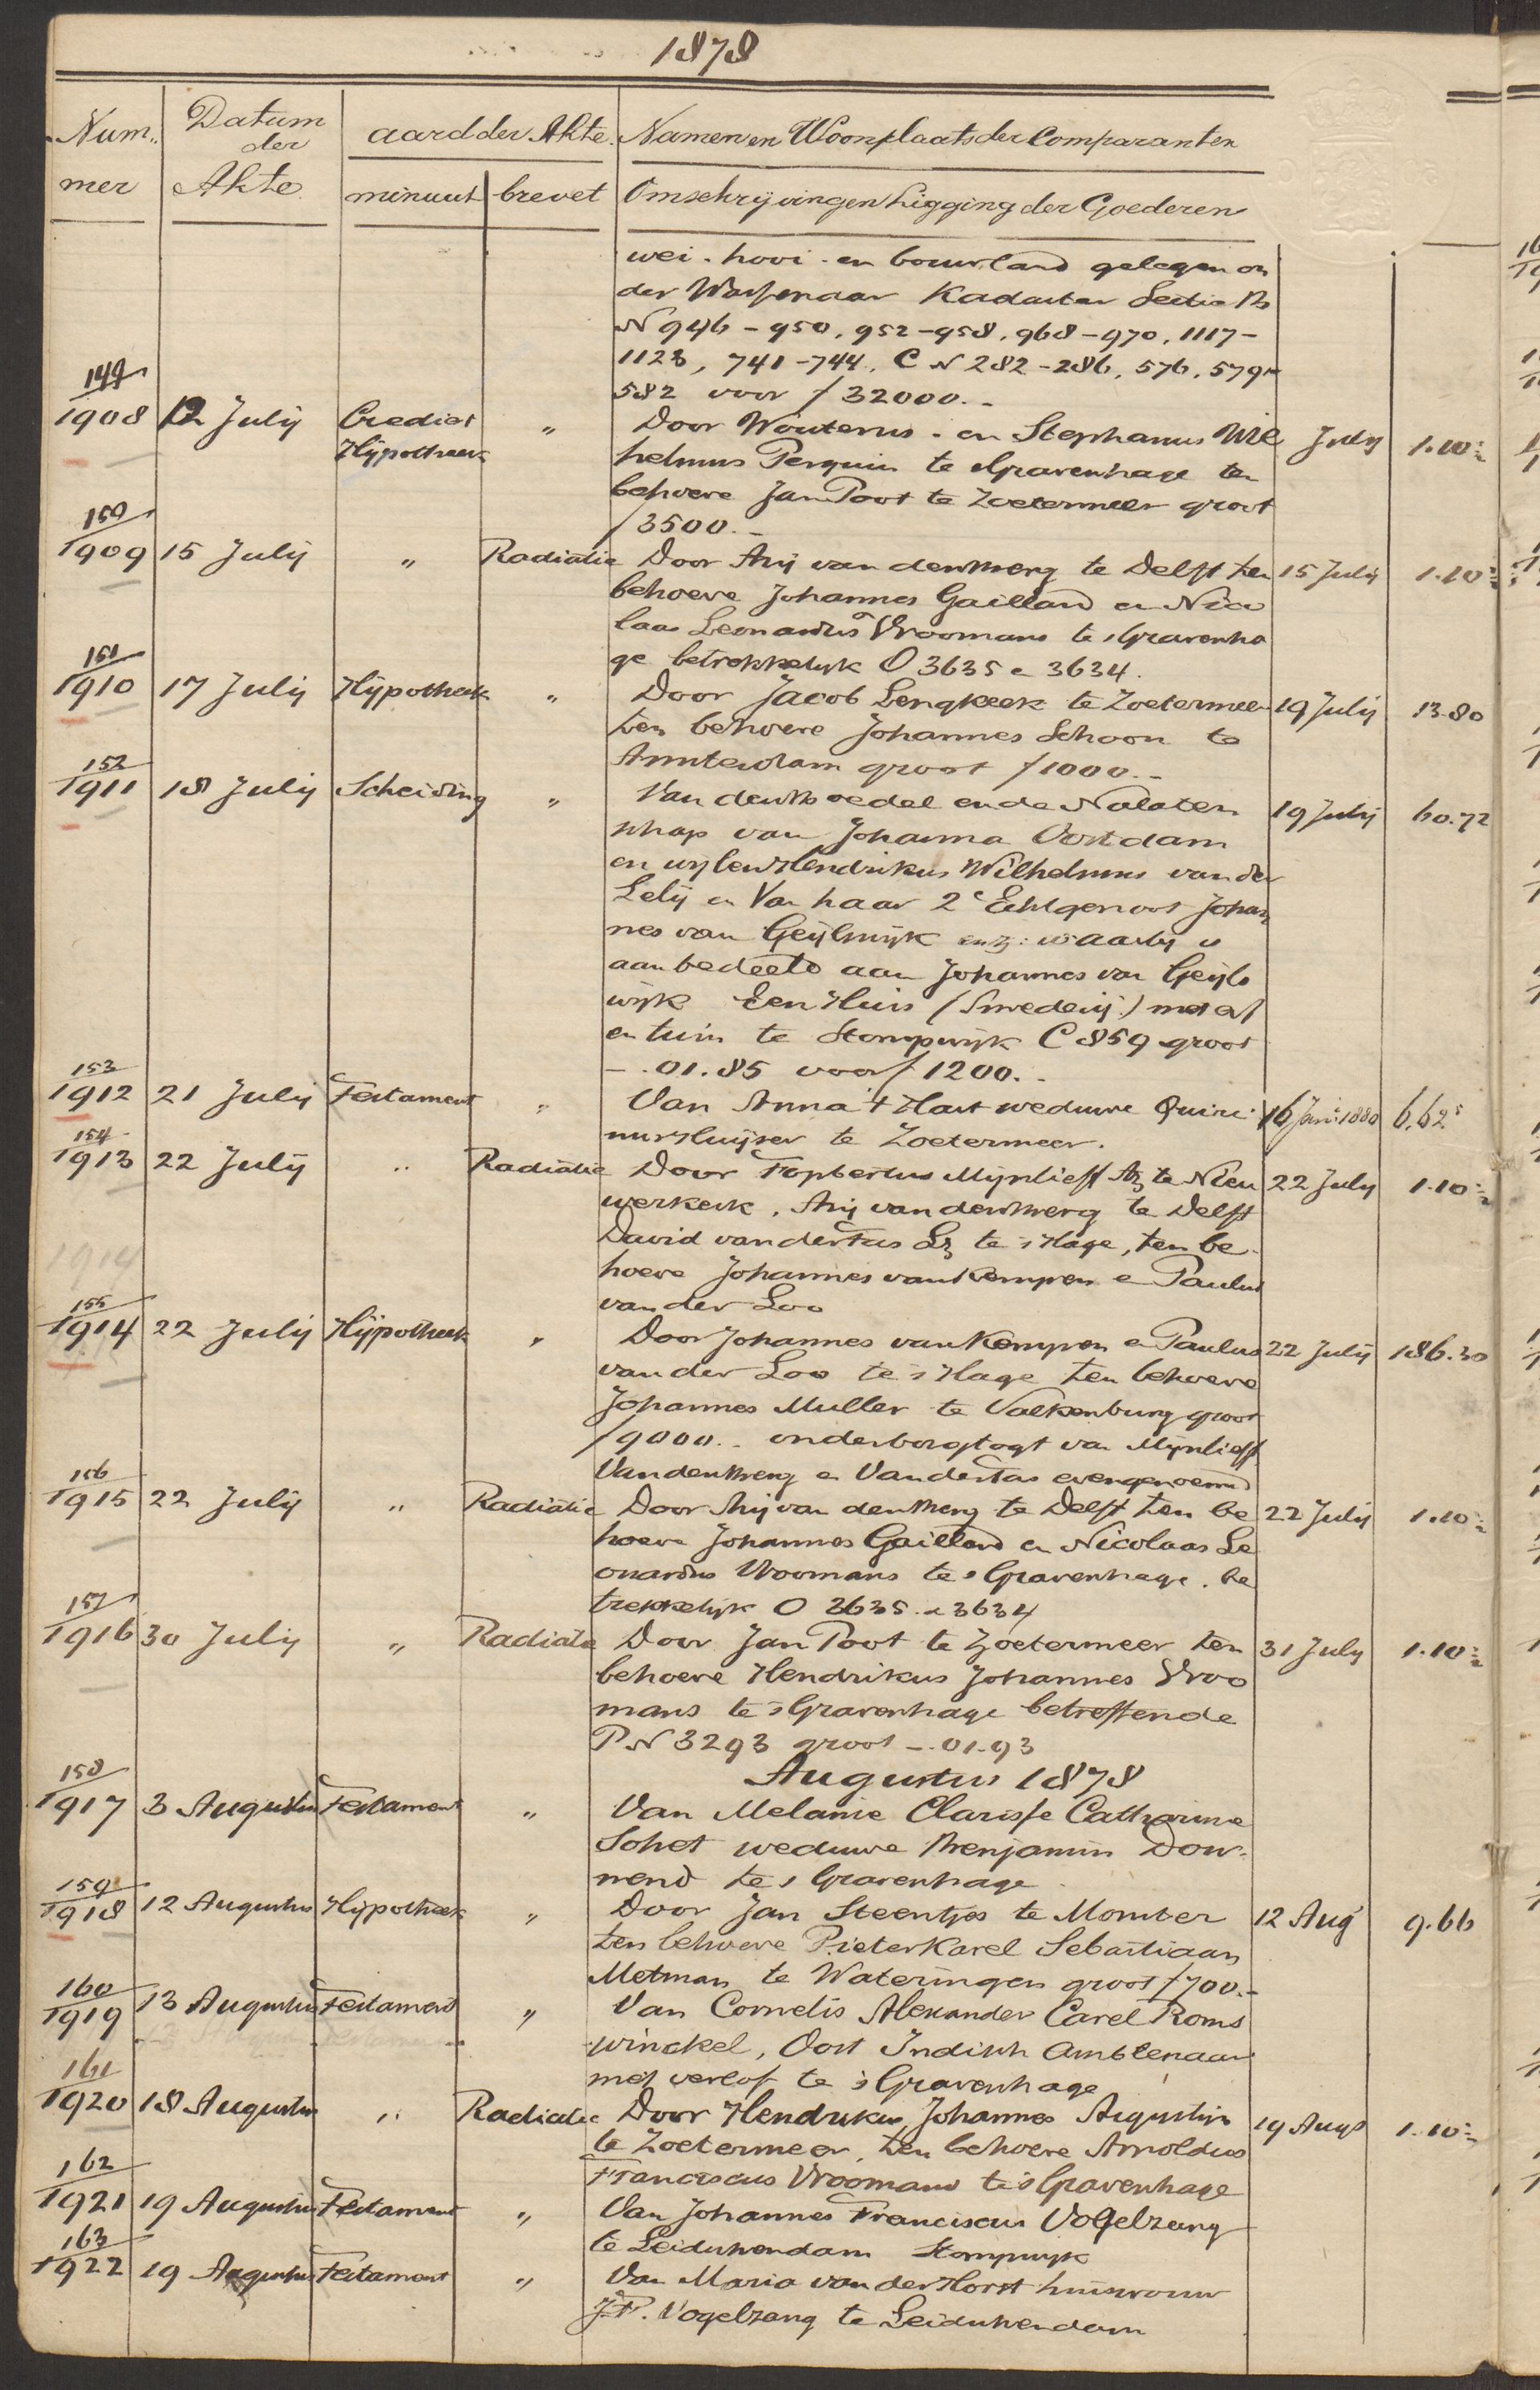 1878
Nummer
Datum der Akte
aard der Akte.
minuut
brevet
Namen en Woonplaats der Comparanten
Omschrijving en Ligging der Goederen
wei- hooi- en bouwland gelegen on
der Wassenaar Kadaster Sectie B
N 946-950, 952-958, 968-970, 1117-
1123, 741-744, C N 282-286, 576, 579 n
582 voor ƒ 32000.-
149
1908 12 Julij Crediet Hijpotheek " Door Wouterus- en Stephanus Wil July 1.10½
helmus Perquin te 'sGravenhage ten
behoeve Jan Poot te Zoetermeer groot
ƒ 3500.-
150
1909 15 Julij " Radiatie Door Arij van den Berg te Delft ten 15 Julij 1.10½
behoeve Johannes Gailland en Nico
laas Leonardus Vroomans te 'sGravenha
ge betrekkelijk O 3635 n 3634.
151
1910 17 Julij Hijpotheek " Door Jacob Lengkeek te Zoetermeer 19 Julij 13.80
ten behoeve Johannes Schoon te
Amsterdam groot ƒ 1000.-
152
1911 18 Julij Scheiding " Van den Boedel en de Nalaten 19 Julij 60.72
schap van Johanna Oostdam
en wylen Hendrikus Wilhelmus van der
Lelij en Van haar 2e Echtgenoot Johan
nes van Geijlswijk enz: waarbij is
aanbedeeld aan Johannes van Geijls
wijk Een Huis (Smederij) met erf
en tuin te Stompwijk C 859 groot
-.01.85 voor ƒ 1200.-
153
1912 21 Julij Testament " Van Anna 't Hart weduwe Quiri- 16 Jan: 1880 6.62⁵
nus Huijser te Zoetermeer.
154
1913 22 Julij " Radiatie Door Fopbertus Mijnlieff Az te Nieu 22 July 1.10½
werkerk, Arij van den Berg te Delft
David van der Tas Lz te 's Hage, ten be-
hoeve Johannes van Kempen en Paulus
van der Loo
1914
155
1914 22 Julij Hijpotheek " Door Johannes van Kempen en Paulus 22 Julij 186.30
van der Loo te 's Hage ten behoeve
Johannes Muller te Valkenburg groot
ƒ 9000.- onder borgtogt van Mijnlieff
Van den Berg en Van der Tas evengenoemd
156
1915 22 Julij " Radiatie Door Arij van den Berg te Delft ten be 22 Julij 1.10½
hoeve Johannes Gailland en Nicolaas Le
onardus Vroomans te 'sGravenhage. be
trekkelijk O 3635 n 3634
157
1916 30 Julij " Radiatie Door Jan Poot te Zoetermeer ten 31 July 1.10½
behoeve Hendrikus Johannes Vroo
mans te 'sGravenhage betreffende
P N 3293 groot -.01.93
Augustus 1878
158
1917 3 Augustus Testament " Van Melanie Clarisse Catharine
Sohet weduwe Benjamin Dow-
nend te 's Gravenhage
159
1918 12 Augustus Hijpotheek " Door Jan Steentjes te Monster 12 Aug 9.66
ten behoeve Pieter Karel Sebastiaan
Metman te Wateringen groot ƒ 700.-
160
1919 13 Augustus Testament " Van Cornelis Alexander Carel Roms
winckel, Oost Indisch Ambtenaar
met verlof te 'sGravenhage
161
1920 18 Augustus " Radiatie Door Hendrikus Johannes Augustijn 19 Augs 1.10½
te Zoetermeer, ten behoeve Arnoldus
Franciscus Vroomans te 'sGravenhage
162
1921 19 Augustus Testament " Van Johannes Franciscus Vogelzang
te Leidschendam Stompwyk
163
1922 19 Augustus Testament " Van Maria van der Horst huisvrouw
J.F. Vogelzang te Leidschendam